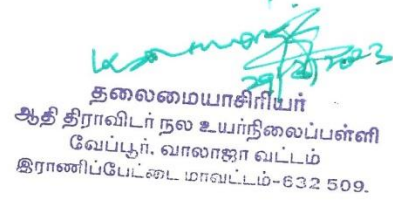 தலைமையாசிரியர்
ஆதி திராவிடர் நல உயர்நிலைப்பள்ளி
வேப்பூர், வாலாஜா வட்டம்
இராணிப்பேட்டை மாவட்டம்-632 509.